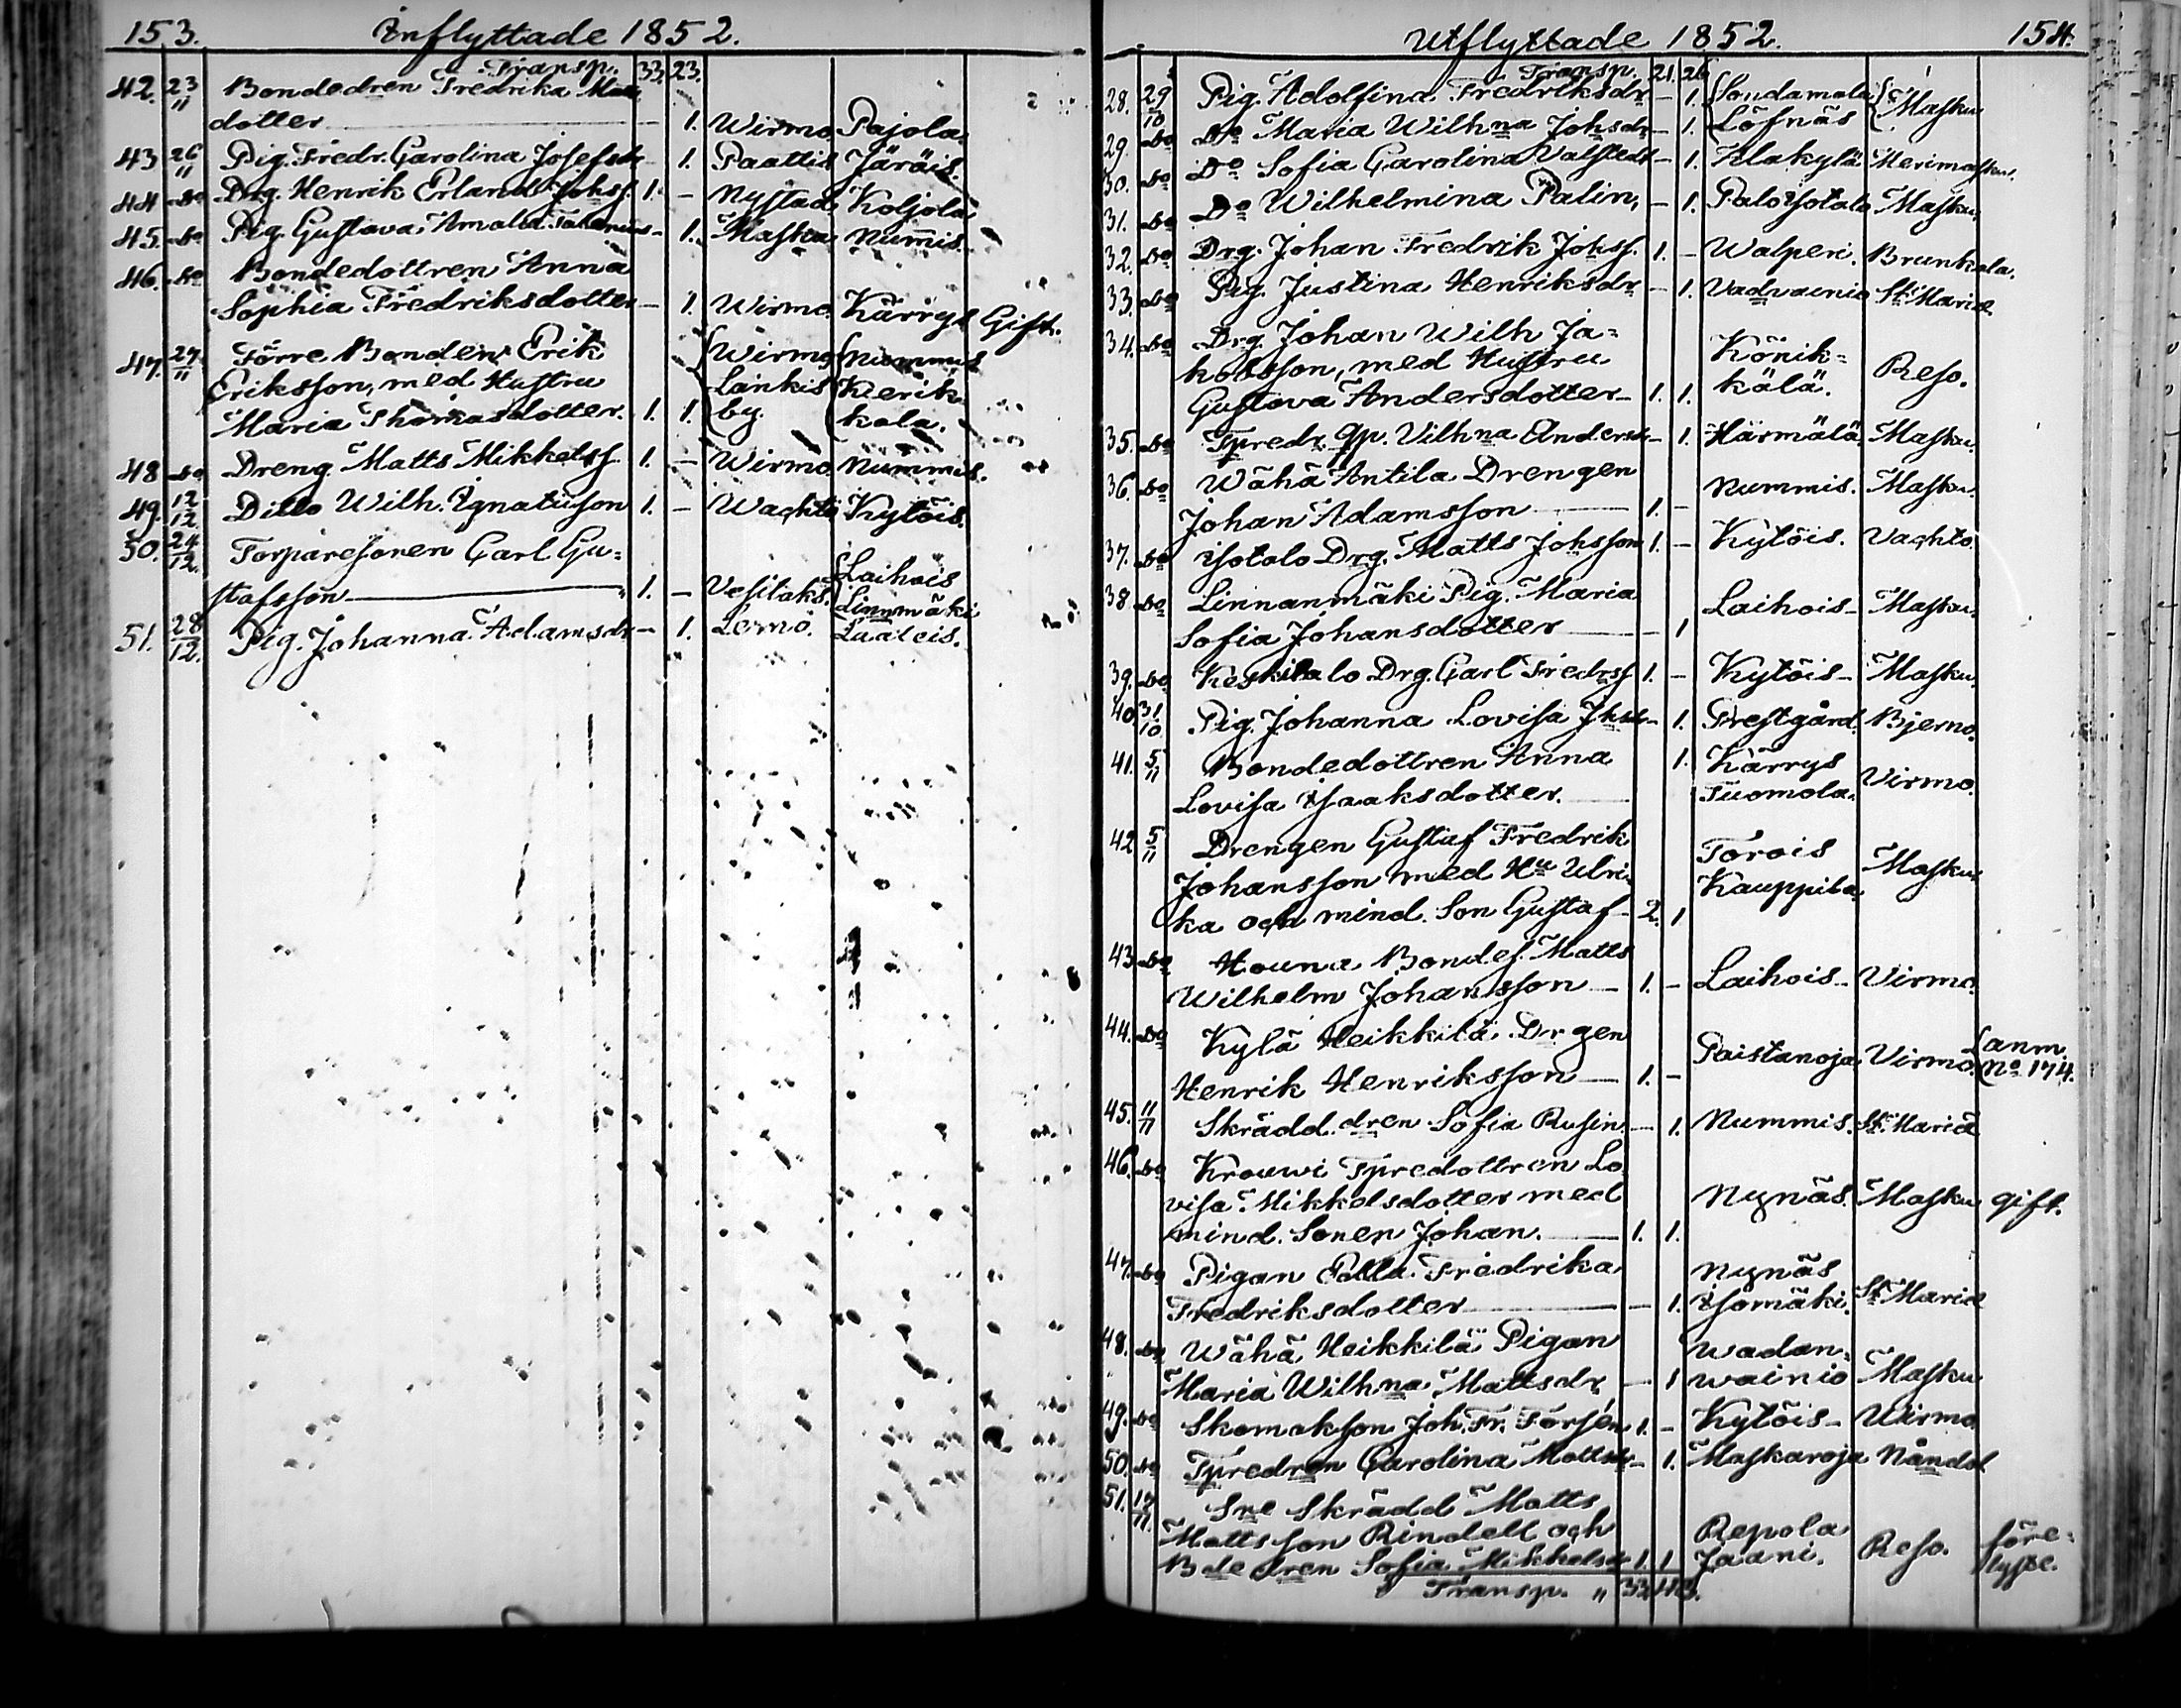 153. Inflyttade 1852.
Transp. 33. 23.
42. 23/11 Bondedren Fredrika
dotter 1. Wirmo Pajola.
43 26/11 Pig. Fredr. Carolina Josefsdr 1. Paattis Järäis.
44 do Drg. Henrik Erland Johss. 1. - Nystad Koljola
45. do Pig. Gustava Amalia - 1. Masku Num̄is.
46. do Bondedottren Anna
Sophia Fredriksdotter - 1. Wirmo. Kärrys Gift.
47. 27/11 Förre Bonden Erik {Wirmo {Nummis
Eriksson, med Hustru Lankis Keerik-
Maria Thomasdotter. 1. 1. by. kala.
48 do Dreng. Matts Mikkelss. 1. - Wirmo Nummis.
49. 12/12 Ditto Wilh. Ignatiusson 1. - Waghto Kytöis.
50. 24/12. Torparesonen Carl Gu=
stafsson 1. - Vesilaks. {Laihois
Linnmäki
51. 28/12. Pig. Johanna Adamsdr - 1. Lemo. Laaleis.
Utflyttade 1852. 154.
Transp. 21. 26
28. 29/10 Pig. Adolfina Fredriksdr - 1. {Sondamala {Masku
29. do Do Maria Wilhna Johsdr - 1. Löfnäs
30. do Do Sofia Carolina Valstedt - 1. Klakylä Merimasku.
31. do Do Wilhelmina Palin, - 1. Palo Isotalo Masku
32. do Drg. Johan Fredrik Johss. 1. - Walperi. Brunkala.
33. do Pig. Justina Henriksdr - 1. Vadvainio St Marie
34. do Drg Johan Wilh Ja=
kobsson, med Hustru Könik=
Gustava Andersdotter - 1. 1. kälä. Reso.
35. do Tpredr. Vilhna Andersdr - 1. Härmälä Masku.
36. do Wähä Antila Drengen
Johan Adamsson 1. - Nummis. Masku.
37. do Isotalo Drg. Matts Johsson 1. - Kytöis. Vaghto
38 Linnanmäki Pig. Maria
Sofia Johansdotter 1 Laihois - Masku.
39. do Keskitalo Drg. Carl Fredrss 1. - Kytöis - Masku.
40 31/10 Pig. Johanna Lovisa Jhsdr - 1. Prestgård. Bjerno.
41. 5/11 Bondedottren Anna 1. Kärrys
Lovisa Isaaksdotter. Tuomola. Virmo.
42 5/11 Drengen Gustaf Fredrik
Johansson med Hu Ulri- Torois
ka och mind. Son Gustaf - 2. 1 Kauppila. Masku.
43 do Houna Bondes. Matts
Wilhelm Johansson - 1. - Laihois - Virmo.
44. do Kylä Heikkilä Drgen
Henrik Henriksson - 1. - Paistanoja Virmo. {anm. No 174.
45. 11/11 Skrädd.dren Sofia Rusin. - 1. Nummis. St. Mariä
46. do Krouwi Tpredottren Lo
visa Mikkelsdotter med
mind. Sonen Johan. 1. 1. Nynäs. Masku gift.
47. do Pigan Fredrika Nynäs
Fredriksdotter - 1. Isomäki. St Marie
48. do Wähä Heikkilä Pigan Wadan=
Maria Wilhna Mattsdr. - 1 wainio Masku
49. do Skomakson Joh. Fr. Forsén 1. - Kytöis - Wirmo
50. do Tpredren Carolina Mattsdr - 1. Maskaroja Nåndal
51. 17/11. Sne Skrädd Matts
Mattsson Rindell och Repola
Bdedren Sofia Mikkelsdr 1. 1 Jaani. Reso. före=
lyste.
Transp. "